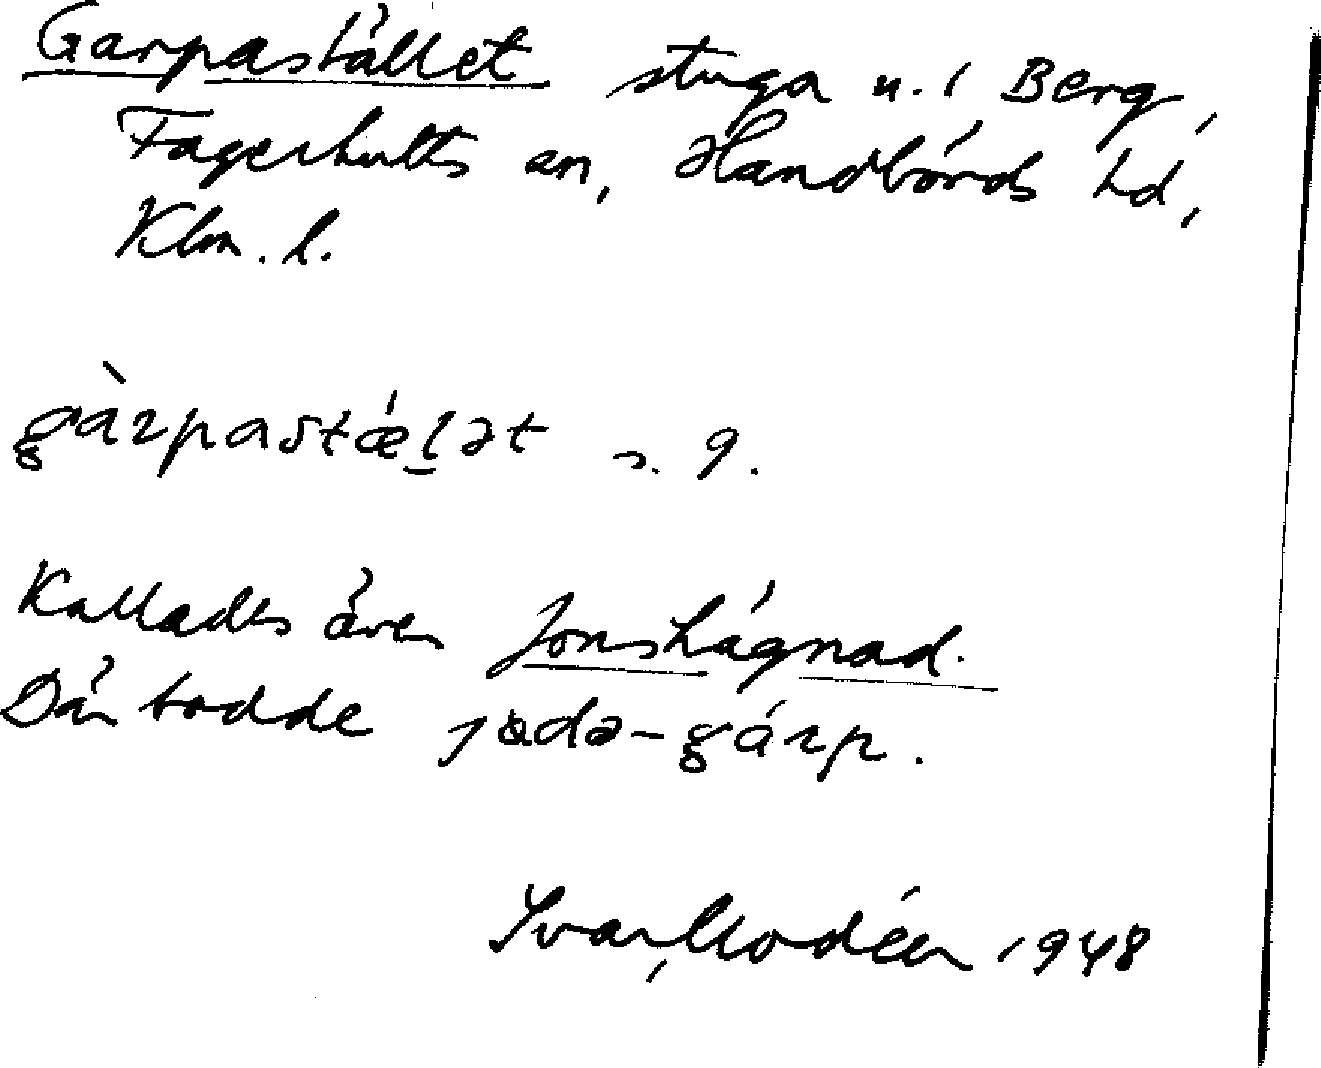 Garpastället stuga u. i Berg,
Fagerhults sn, Handbörds hd,
Klm. l.
gàrpastǽl̠ət n. 9.
Kallades även Jonshägnad.
Där bodde -gárp.
Ivar Modéer 1948